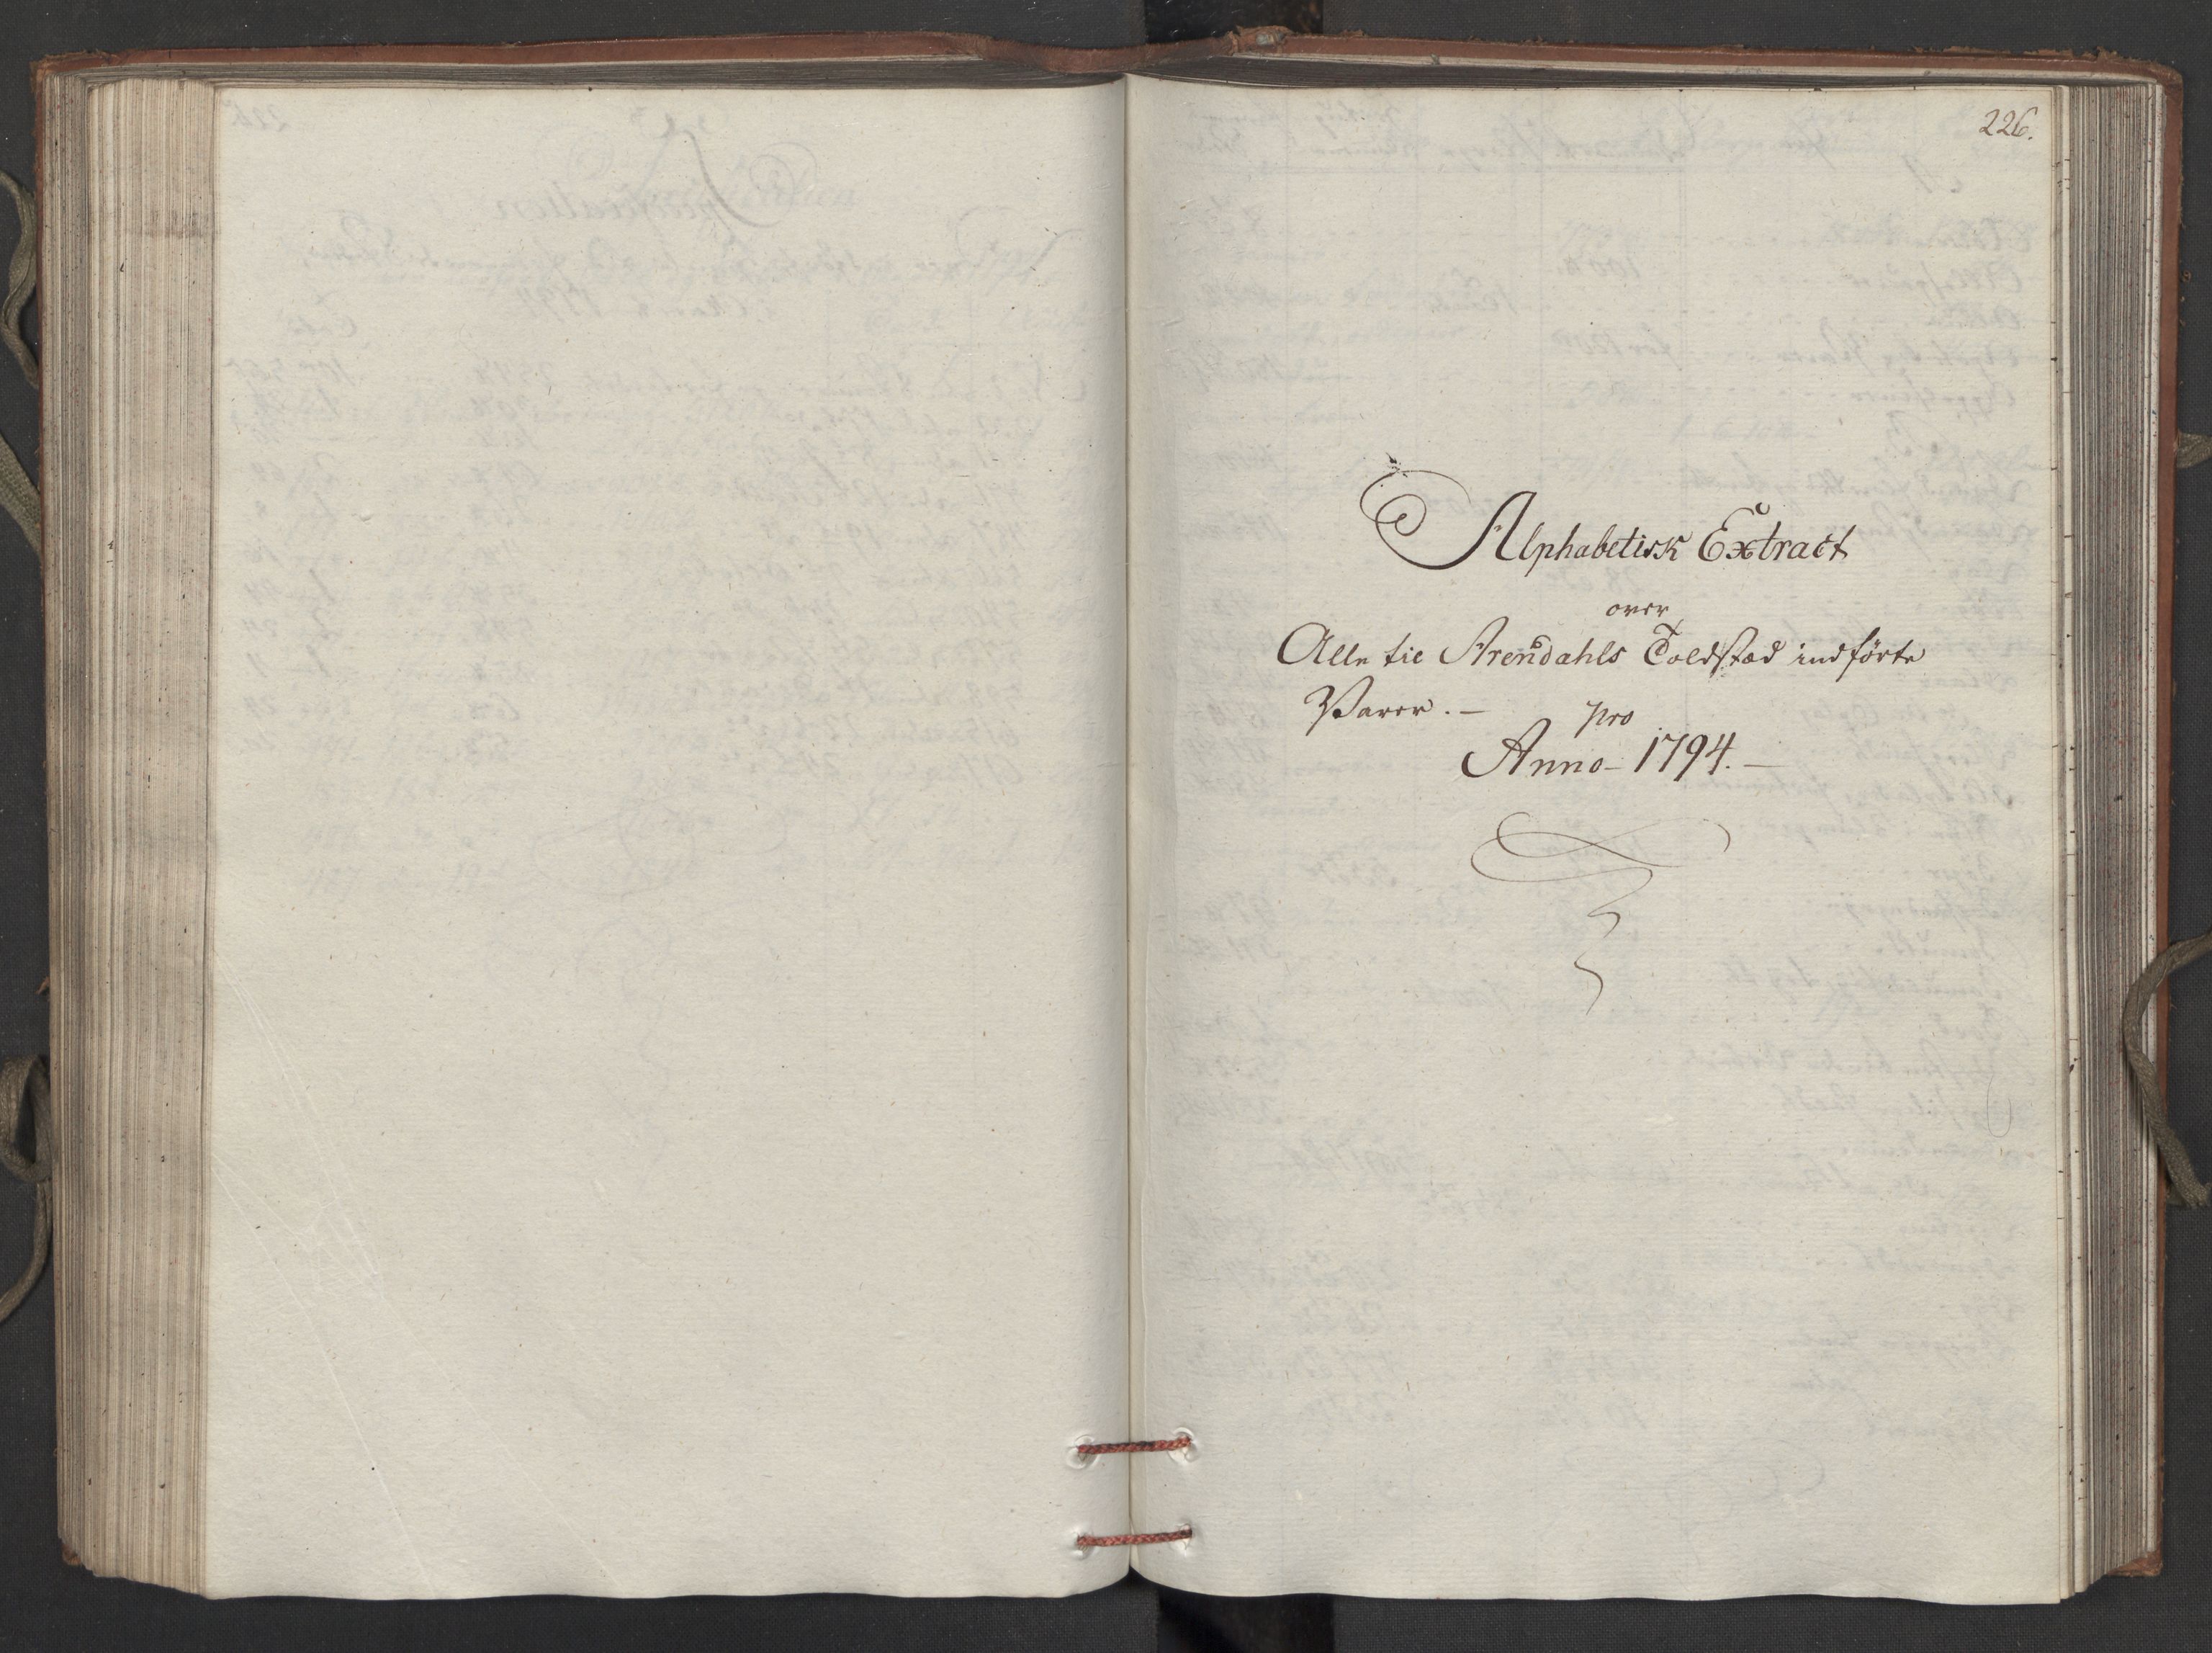 226.
Alphabetisk Extract
over
Alle til Arendahls Toldstæd indførte
Varer. —
pro
Anno 1794. —